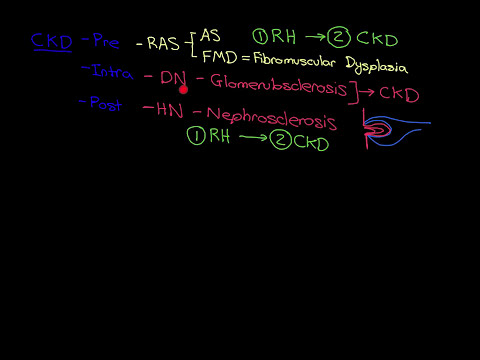 CKD - Pre - RAS - AS ① RH → ② CKD
FMD = Fibromuscular Dysplasia
- Intra - DN - Glomerubsclerosis → CKD
- Post - HN - Nephrosclerosis
① RH → ② CKD